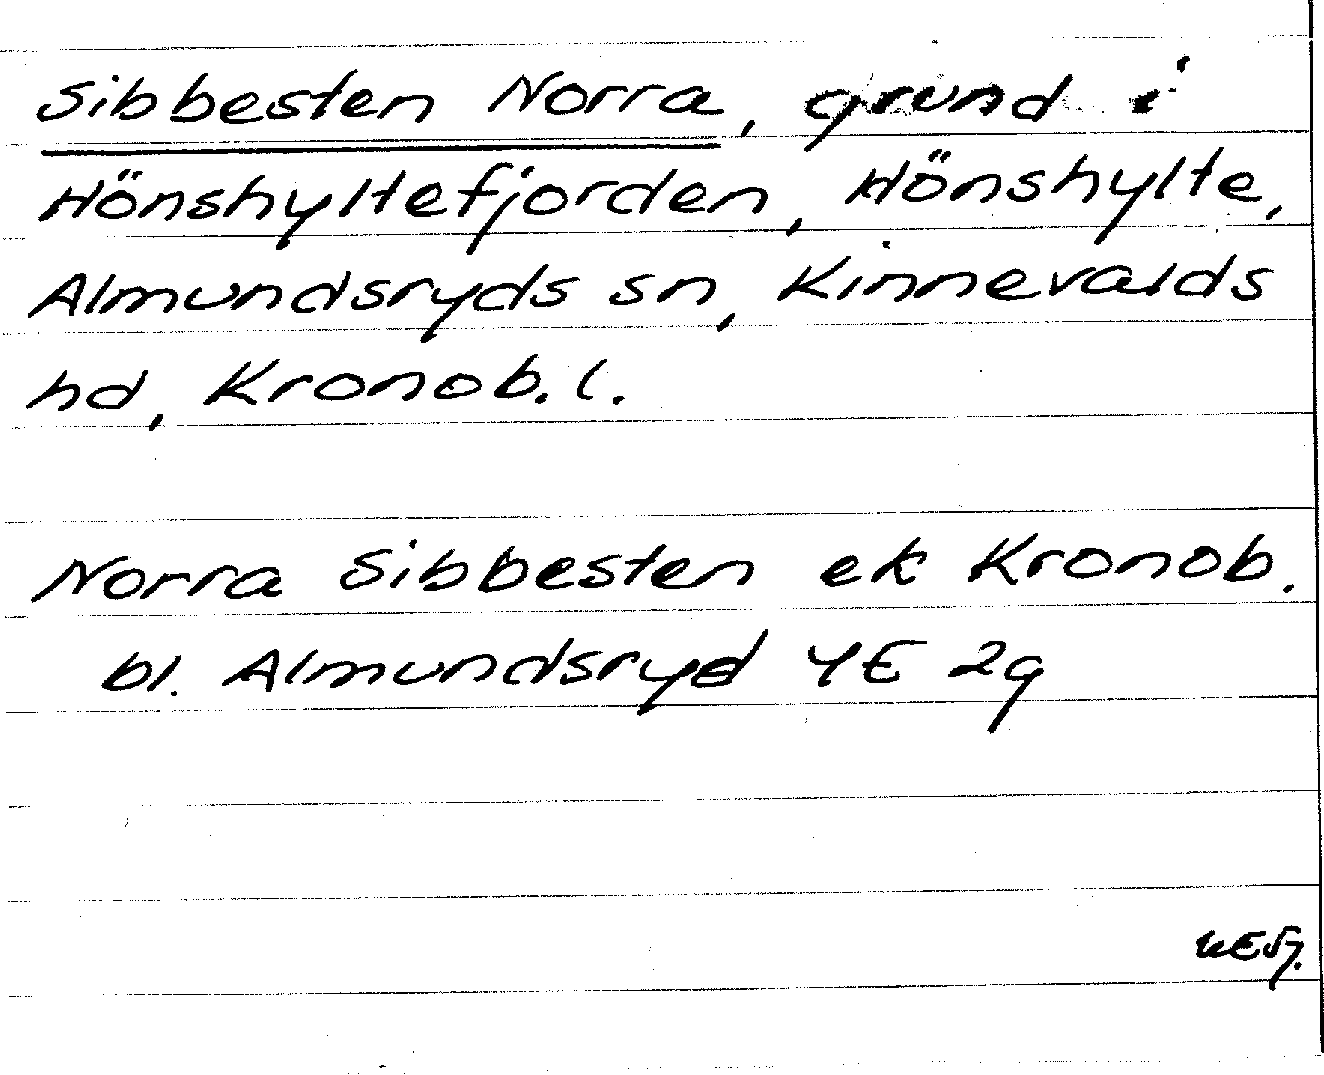 Sibbesten Norra, grund i
Hönshyltefjorden, Hönshylte,
Almundsryds sn, Kinnevalds
hd, Kronob. l.
Norra Sibbesten ek Kronob.
bl. Almundsryd 4E 2g